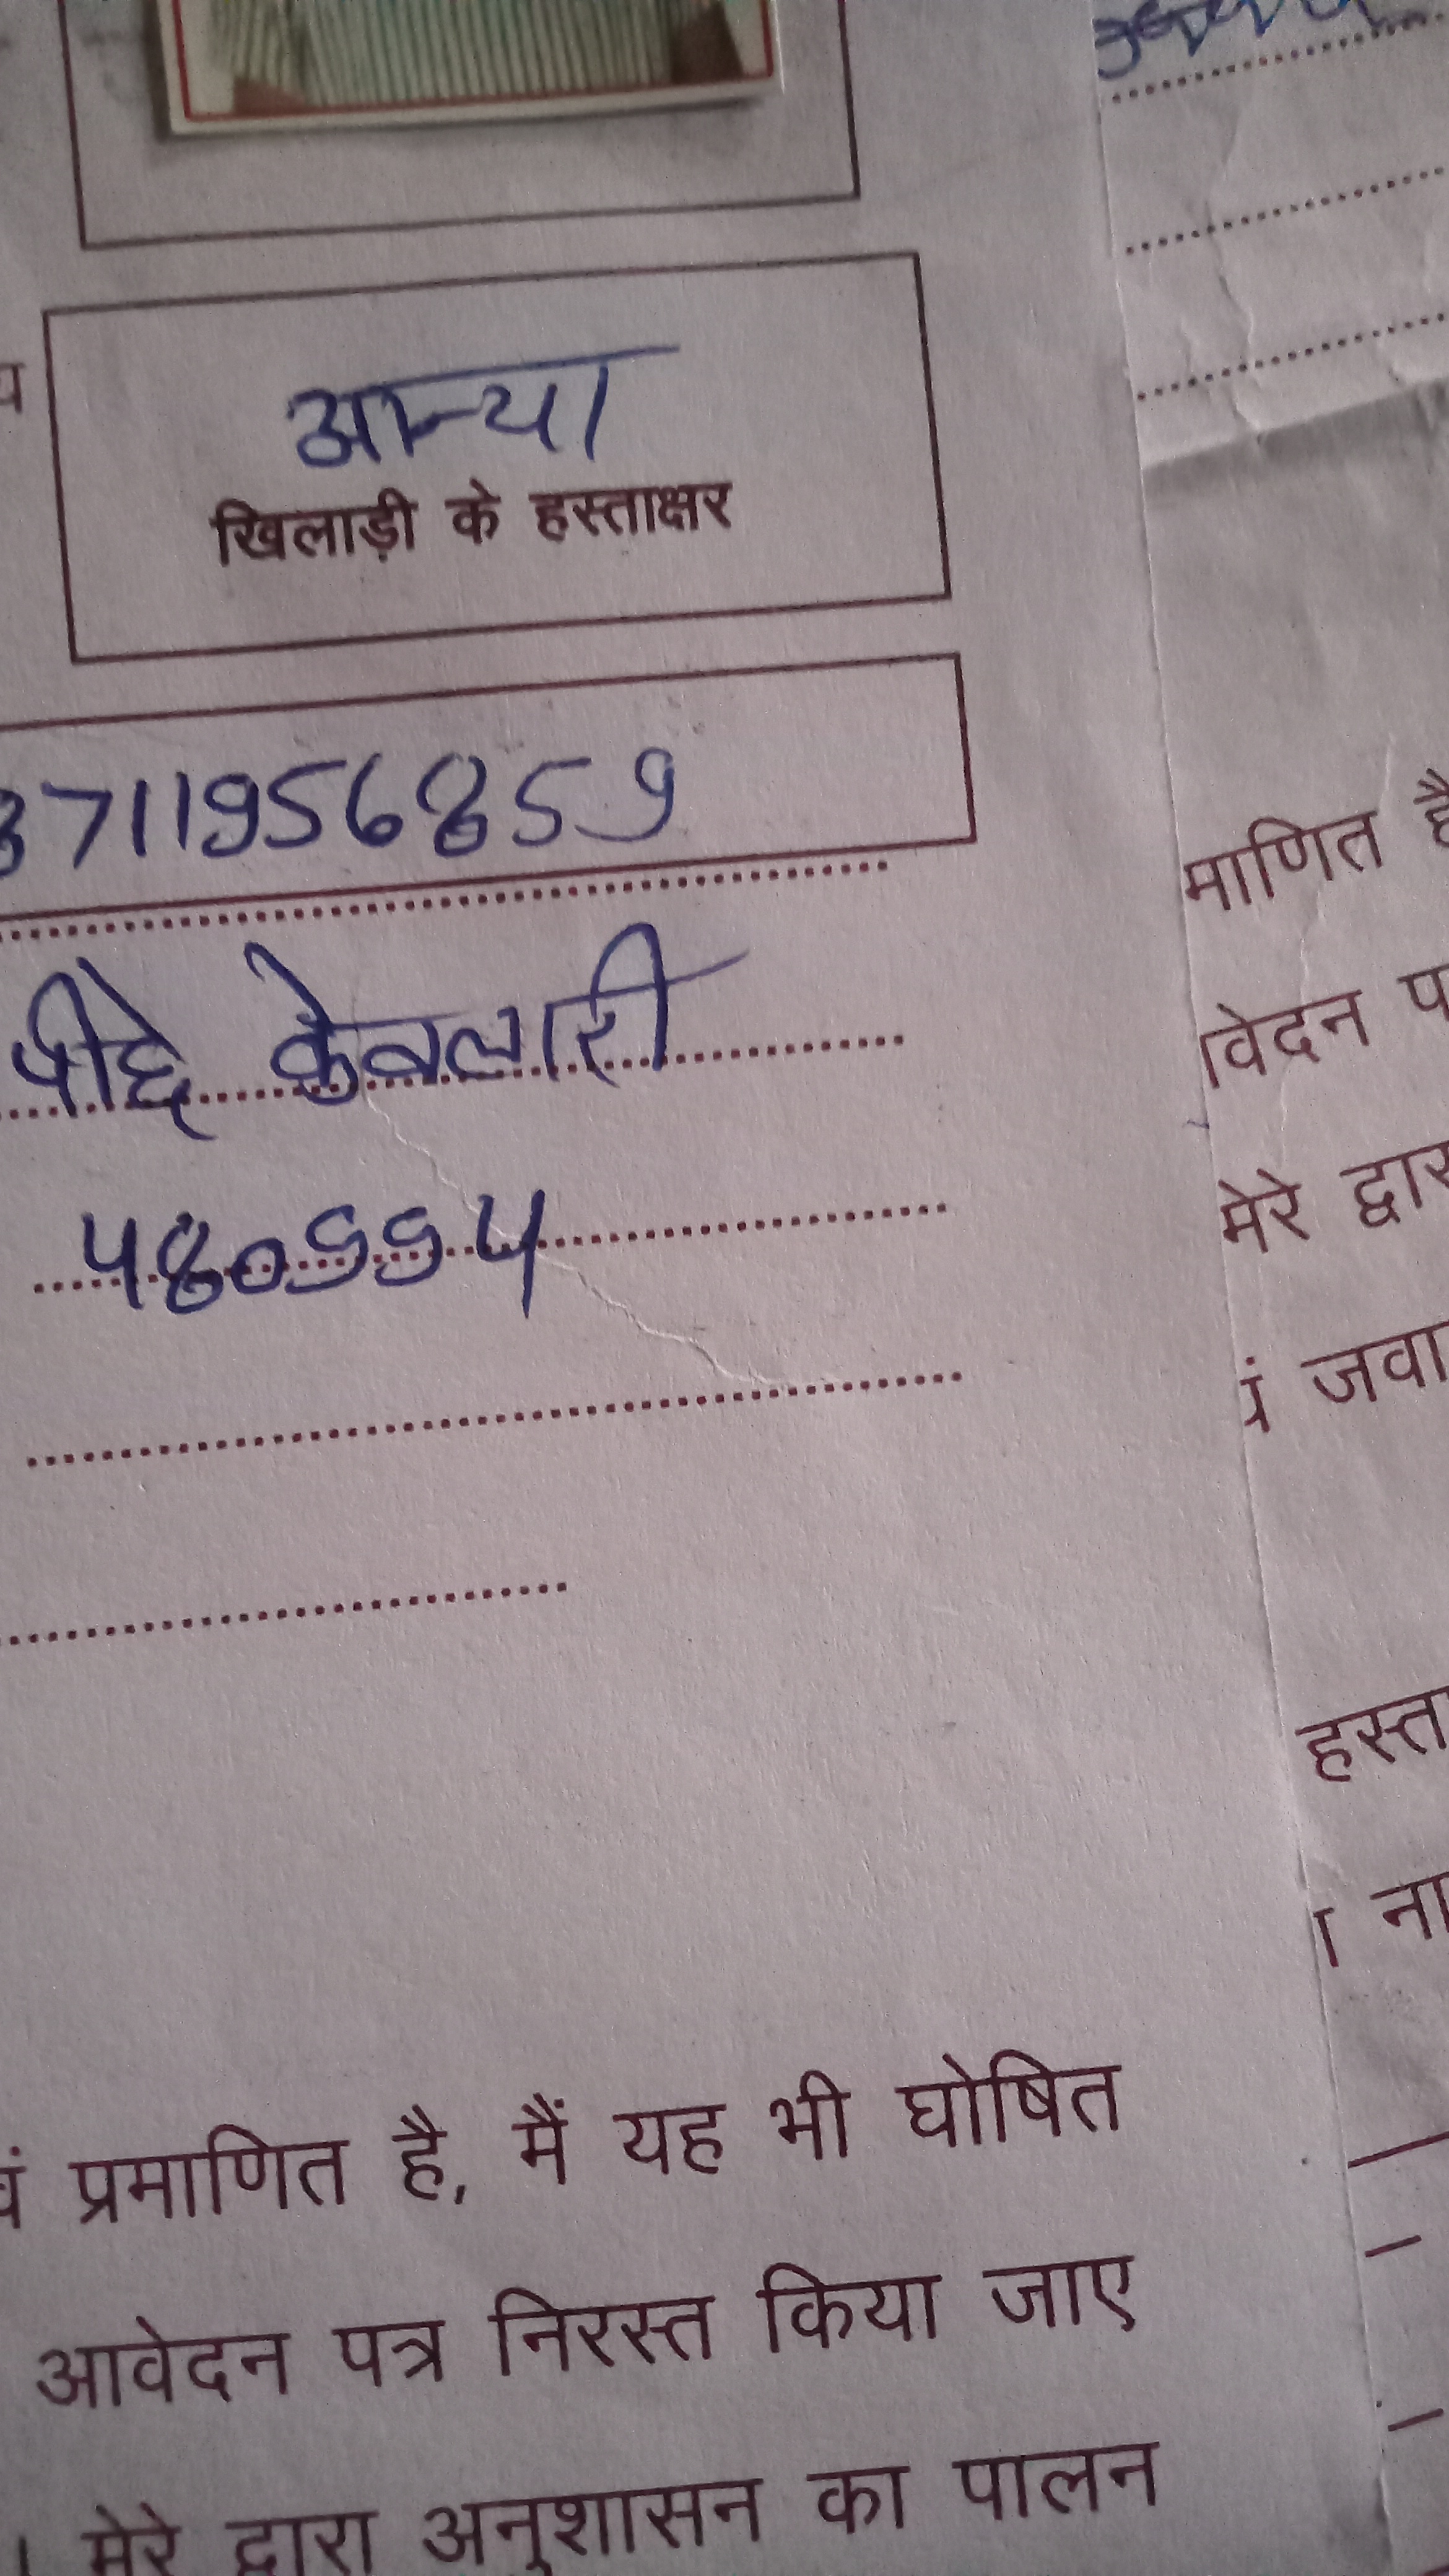 आन्या
खिलाड़ी के हस्ताक्षर
3711956859
पीछे केवलारी
480994
प्रमाणित है, मैं यह भी घोषित
आवेदन पत्र निरस्त किया जाए
मेरे द्वारा अनुशासन का पालन
माणित है
वेदन प
मेरे द्वार
जवा
हस्त
ना